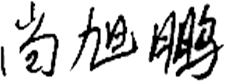 尚旭鹏